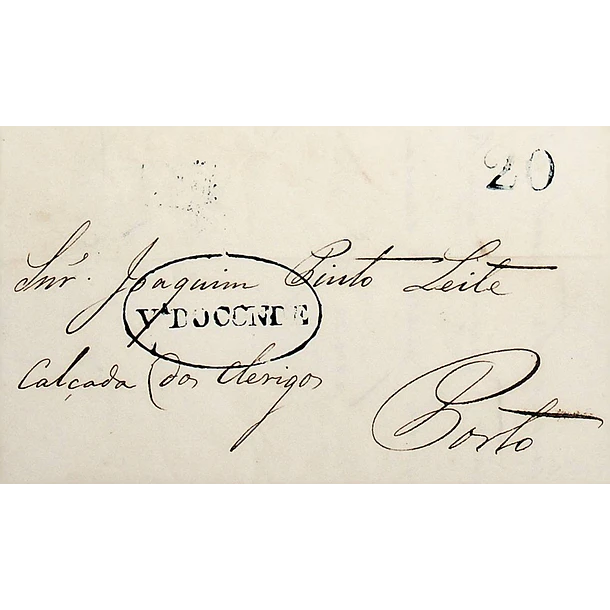 20
Snr. Joaquim Pinto Leite
Vª DOCONDE
Calçada dos Clerigos
Porto